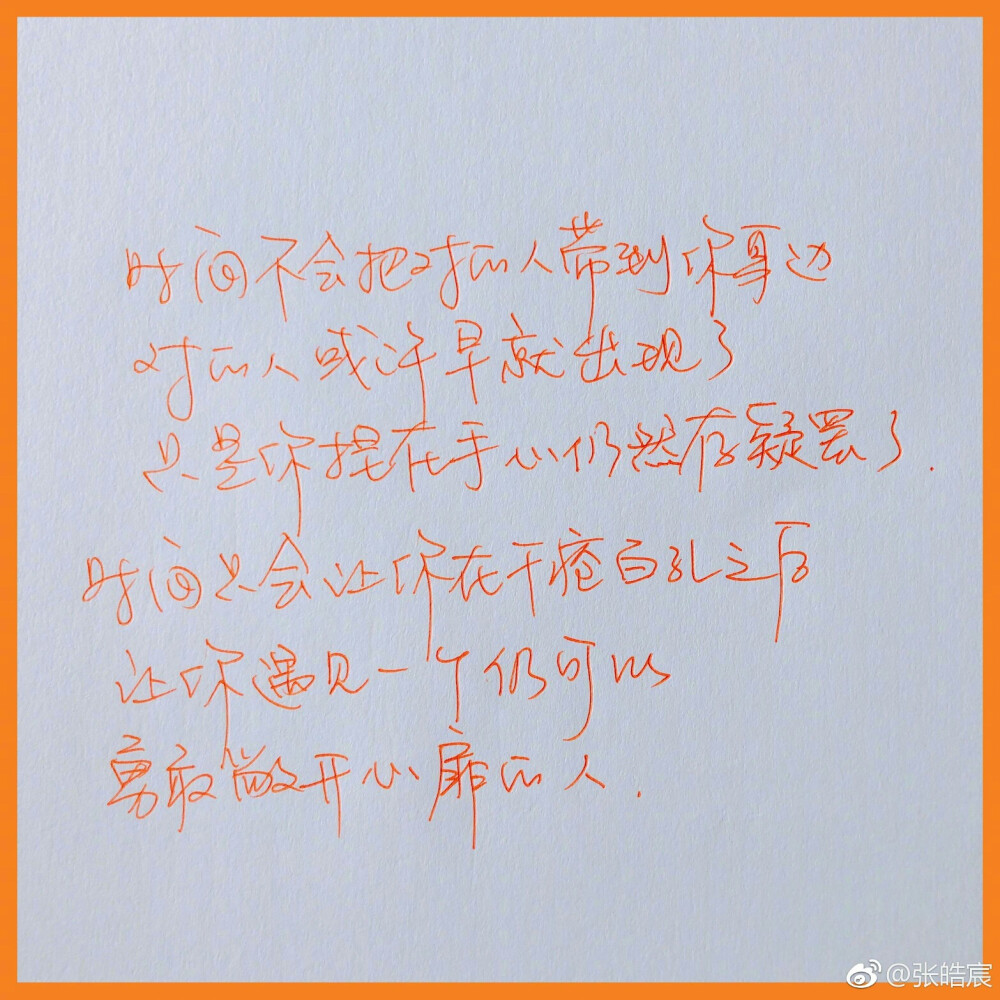 时间不会把对的人带到你耳边
对的人或许早就出现了
只是你捏在手心仍然存疑罢了.
时间只会让你在千疮百孔之后
让你遇见一个仍可以
勇敢敞开心扉的人.
@张皓宸